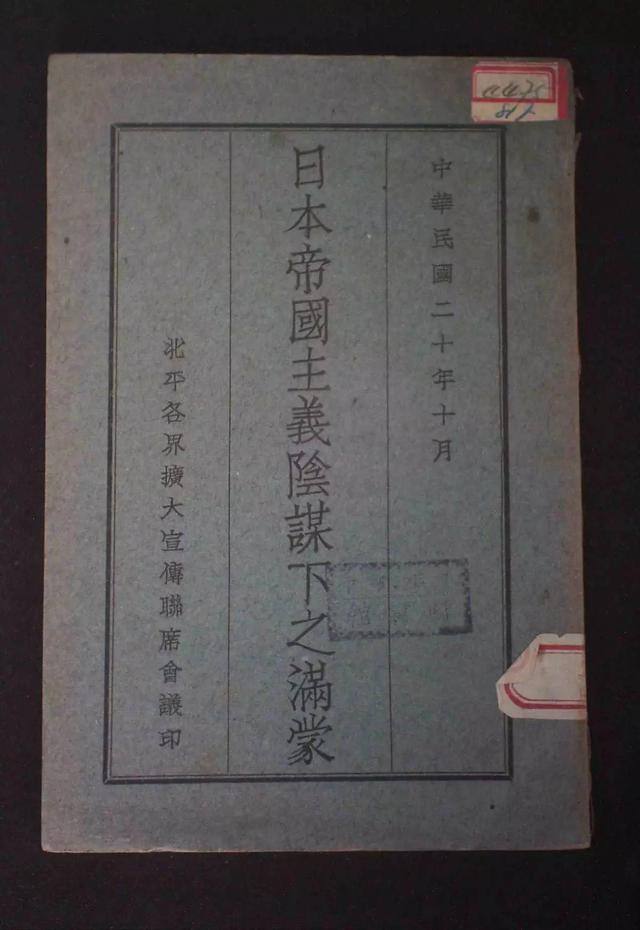 中華民國二十年十月
日本帝國主義陰謀下之滿蒙
北平各界擴大宣傳聯席會議印